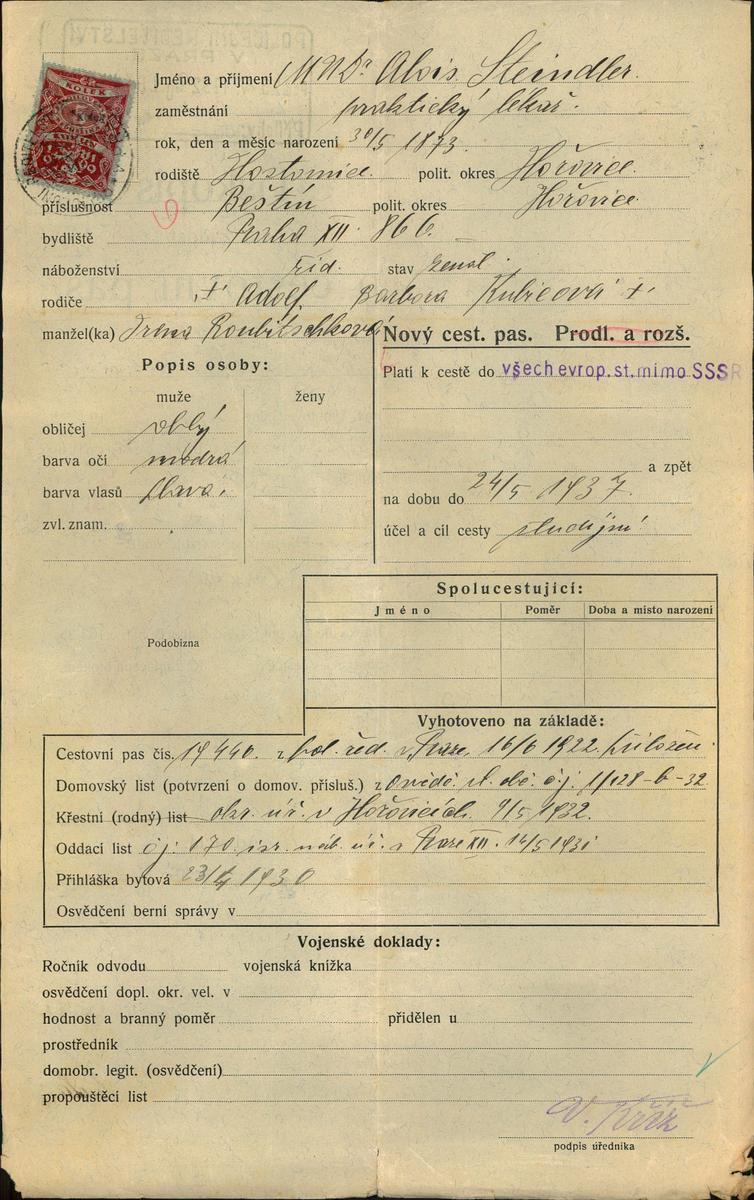 Jméno a příjmení MUDr Alois Steindler.
zaměstnání praktický lékař.
rok, den a měsíc narození 30/5 1873.
rodiště Hostomice. polit. okres Hořovice.
příslušnost Beštín polit. okres Hořovice.
bydliště Praha XII. 866.
náboženství žid. stav ženat.
rodiče † Adolf. Barbora Kubicová †
manžel(ka) Irena Roubitschková
Nový cest. pas. Prodl. a rozš.
Popis osoby:
Platí k cestě do všech evrop. st. mimo SSSR
muže ženy
obličej oblý
barva očí modrá
a zpět
barva vlasů plavá.
na dobu do 24/5 1937.
zvl. znam.
účel a cíl cesty studijní
Spolucestující:
Jméno Poměr Doba a misto narození
Podobizna
Vyhotoveno na základě:
Cestovní pas čís. 19440. z pol. řed. v Praze, 16/6 1922. přiložen.
Domovský list (potvrzení o domov. přísluš.) z čj:
Křestní (rodný) list okr. úř. v Hořovicích. 9/5 1932.
Oddací list čj: 170 isr. náb. úř. v Praze XII. 14/5 1931
Přihláška bytová 23/4 1930
Osvědčení berní správy v
Vojenské doklady:
Ročník odvodu vojenská knížka
osvědčení dopl. okr. vel. v
hodnost a branný poměr přidělen u
prostředník
domobr. legit. (osvědčení)
propouštěcí list
V. Kříž
podpis úředníka
KOLEK